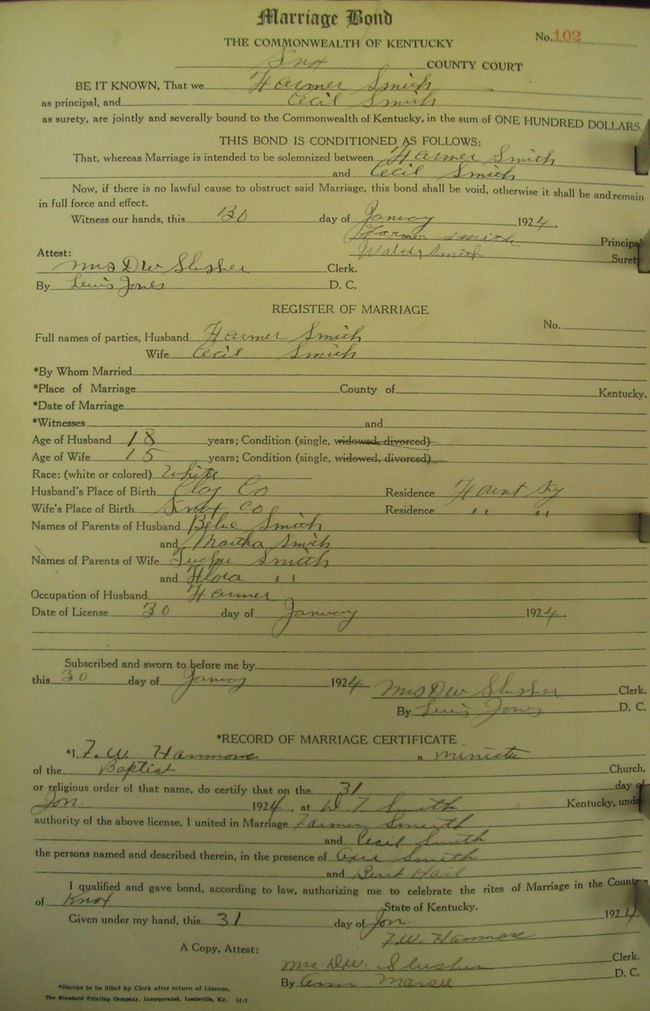 Marriage Bond
No. 102
THE COMMONWEALTH OF KENTUCKY
Knox COUNTY COURT
BE IT KNOWN, That we Farmer Smith
as principal, and Cecil Smith
as surety, are jointly and severally bound to the Commonwealth of Kentucky, in the sum of ONE HUNDRED DOLLARS.
THIS BOND IS CONDITIONED AS FOLLOWS:
That, whereas Marriage is intended to be solemnized between Farmer Smith
and Cecil Smith
Now, if there is no lawful cause to obstruct said Marriage, this bond shall be void, otherwise it shall be and remain
in full force and effect.
Witness our hands, this 30 day of January 1924.
Farmer Smith Principal
Walter Smith Surety
Attest:
Mrs DW Slusher Clerk.
By Lewis Jones D. C.
REGISTER OF MARRIAGE
No.
Full names of parties, Husband Farmer Smith
Wife Cecil Smith
*By Whom Married
*Place of Marriage County of Kentucky.
*Date of Marriage
*Witnesses and
Age of Husband 18 years; Condition (single, widowed, divorced)
Age of Wife 15 years; Condition (single, widowed, divorced)
Race: (white or colored) White
Husband's Place of Birth Clay Co Residence Ky
Wife's Place of Birth Knox Co Residence " "
Names of Parents of Husband Smith
and Martha Smith
Names of Parents of Wife Smith
and Flora "
Occupation of Husband Farmer
Date of License 30 day of January 1924.
Subscribed and sworn to before me by
this 30 day of January 1924 Mrs DW Slusher Clerk.
By Lewis Jones D. C.
*RECORD OF MARRIAGE CERTIFICATE
*I, F. W. Hammons a Minister
of the Baptist Church,
or religious order of that name, do certify that on the 31 day of
Jan. 1924, at Smith Kentucky, under
authority of the above license, I united in Marriage Farmer Smith
and Cecil Smith
the persons named and described therein, in the presence of Smith
and Bent Hail
I qualified and gave bond, according to law, authorizing me to celebrate the rites of Marriage in the County
of Knox State of Kentucky.
Given under my hand, this 31 day of Jan. 1924
F. W. Hammons
A Copy, Attest:
Mrs D.W. Slusher Clerk.
By D. C.
*Blanks to be filled by Clerk after return of License.
The Standard Printing Company, Incorporated, Louisville, Ky.